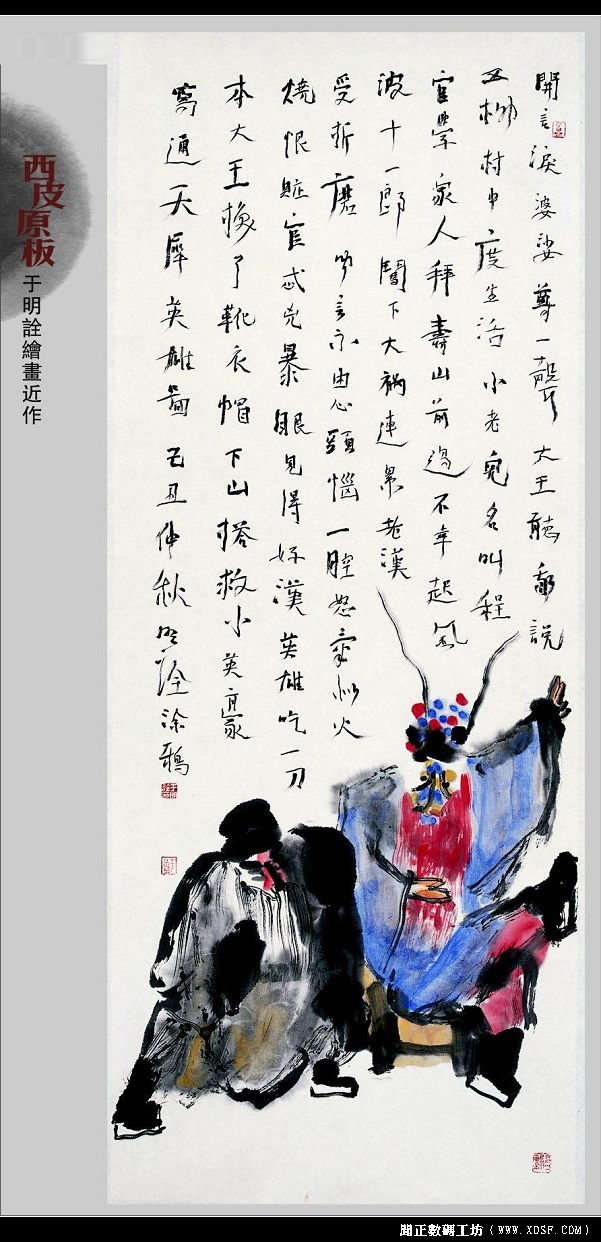 開言淚婆娑尊一聲大王聽我說
五柳村中度生活小老兒名叫程
官學家人拜壽山前過不幸起風
波十一郎闖下大禍連累老漢
受折磨聞言不由心頭惱一腔怒氣似火
燒恨賍官忒兇暴眼見得好漢英雄吃一刀
本大王換了靴衣帽下山搭救小英豪
寫通天犀英雄圖己丑仲秋明詮涂鴉
西皮原板
于明詮繪畫近作
聞正數碼工坊（WWW.XDSF.COM）